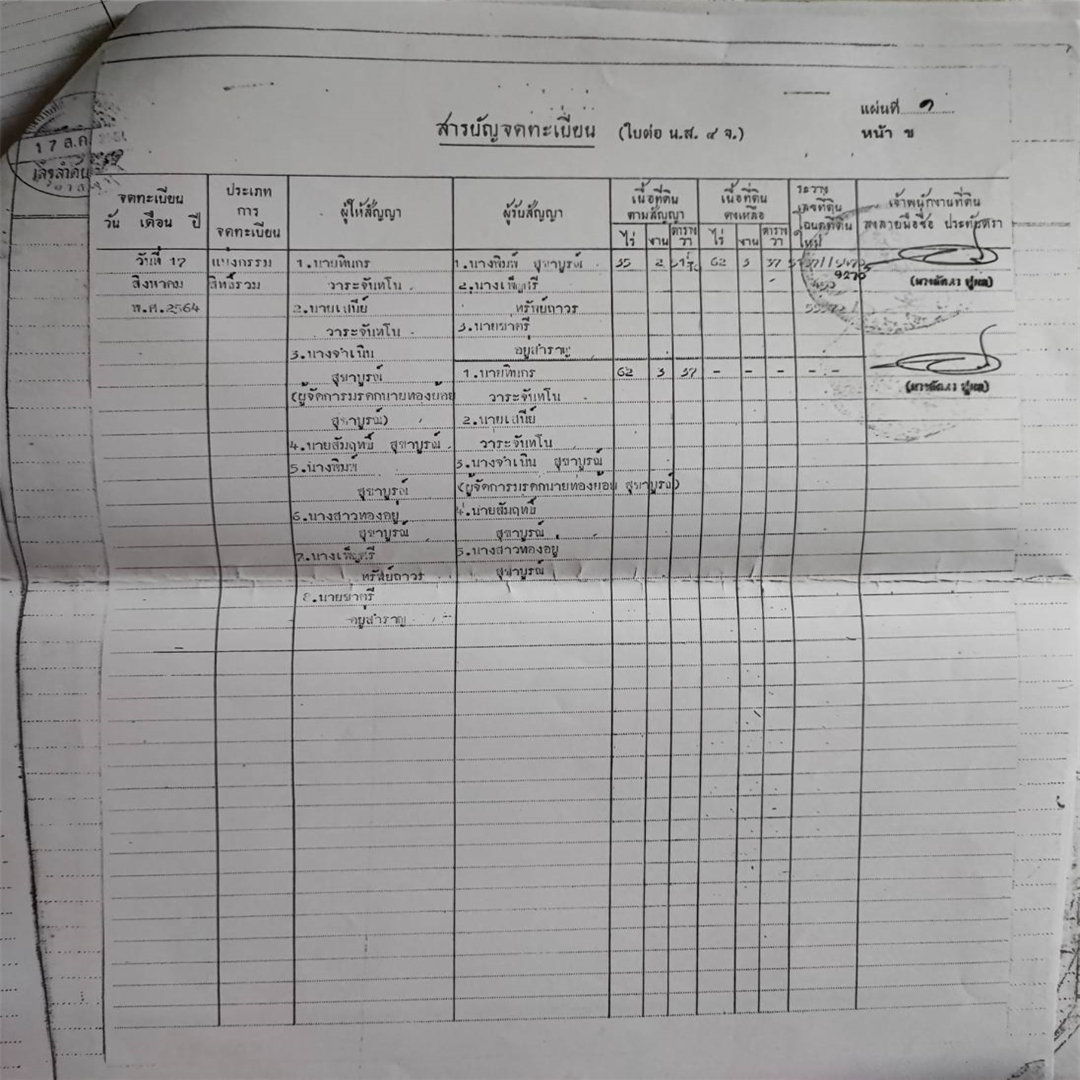 แผ่นที่ ๑
สารบัญจดทะเบียน (ใบต่อ น.ส. ๔ จ.)
หน้า ข
17 ส.ค.
เลขลำดับ
จดทะเบียน
วัน เดือน ปี
ประเภท
การ
จดทะเบียน
ผู้ให้สัญญา
ผู้รับสัญญา
เนื้อที่ดิน
ตามสัญญา
ไร่ งาน ตาราง
วา
เนื้อที่ดิน
คงเหลือ
ไร่ งาน ตาราง
วา
ระวาง
เลขที่ดิน
โฉนดที่ดิน
ใหม่
เจ้าพนักงานที่ดิน
ลงลายมือชื่อ ประทับตรา
วันที่ 17 แบ่งกรรม 1.นายทินกร 1.นางพิมพ์ สุขาบูรณ์ 35 2 62 3 37
สิงหาคม สิทธิ์รวม วาระจันทโน 2.นางเพ็ญศรี 9275
พ.ศ.2564 2.นายเสนีย์ ทรัพย์ถาวร
วาระจันทโน 3.นายชาตรี
3.นางจำเนิน อยู่สำราญ
สุขาบูรณ์ 1.นายทินกร 62 3 37 - - - - -
(ผู้จัดการมรดกนายทองย้อย วาระจันทโน
สุขาบูรณ์) 2.นายเสนีย์
4.นายสัมฤทธิ์ สุขาบูรณ์ วาระจันทโน
5.นางพิมพ์ 3.นางจำเนิน สุขาบูรณ์
สุขาบูรณ์ (ผู้จัดการมรดกนายทองย้อย สุขาบูรณ์)
6.นางสาวทองอยู่ 4.นายสัมฤทธิ์
สุขาบูรณ์ สุขาบูรณ์
7.นางเพ็ญศรี 5.นางสาวทองอยู่
ทรัพย์ถาวร สุขาบูรณ์
8.นายชาตรี
อยู่สำราญ